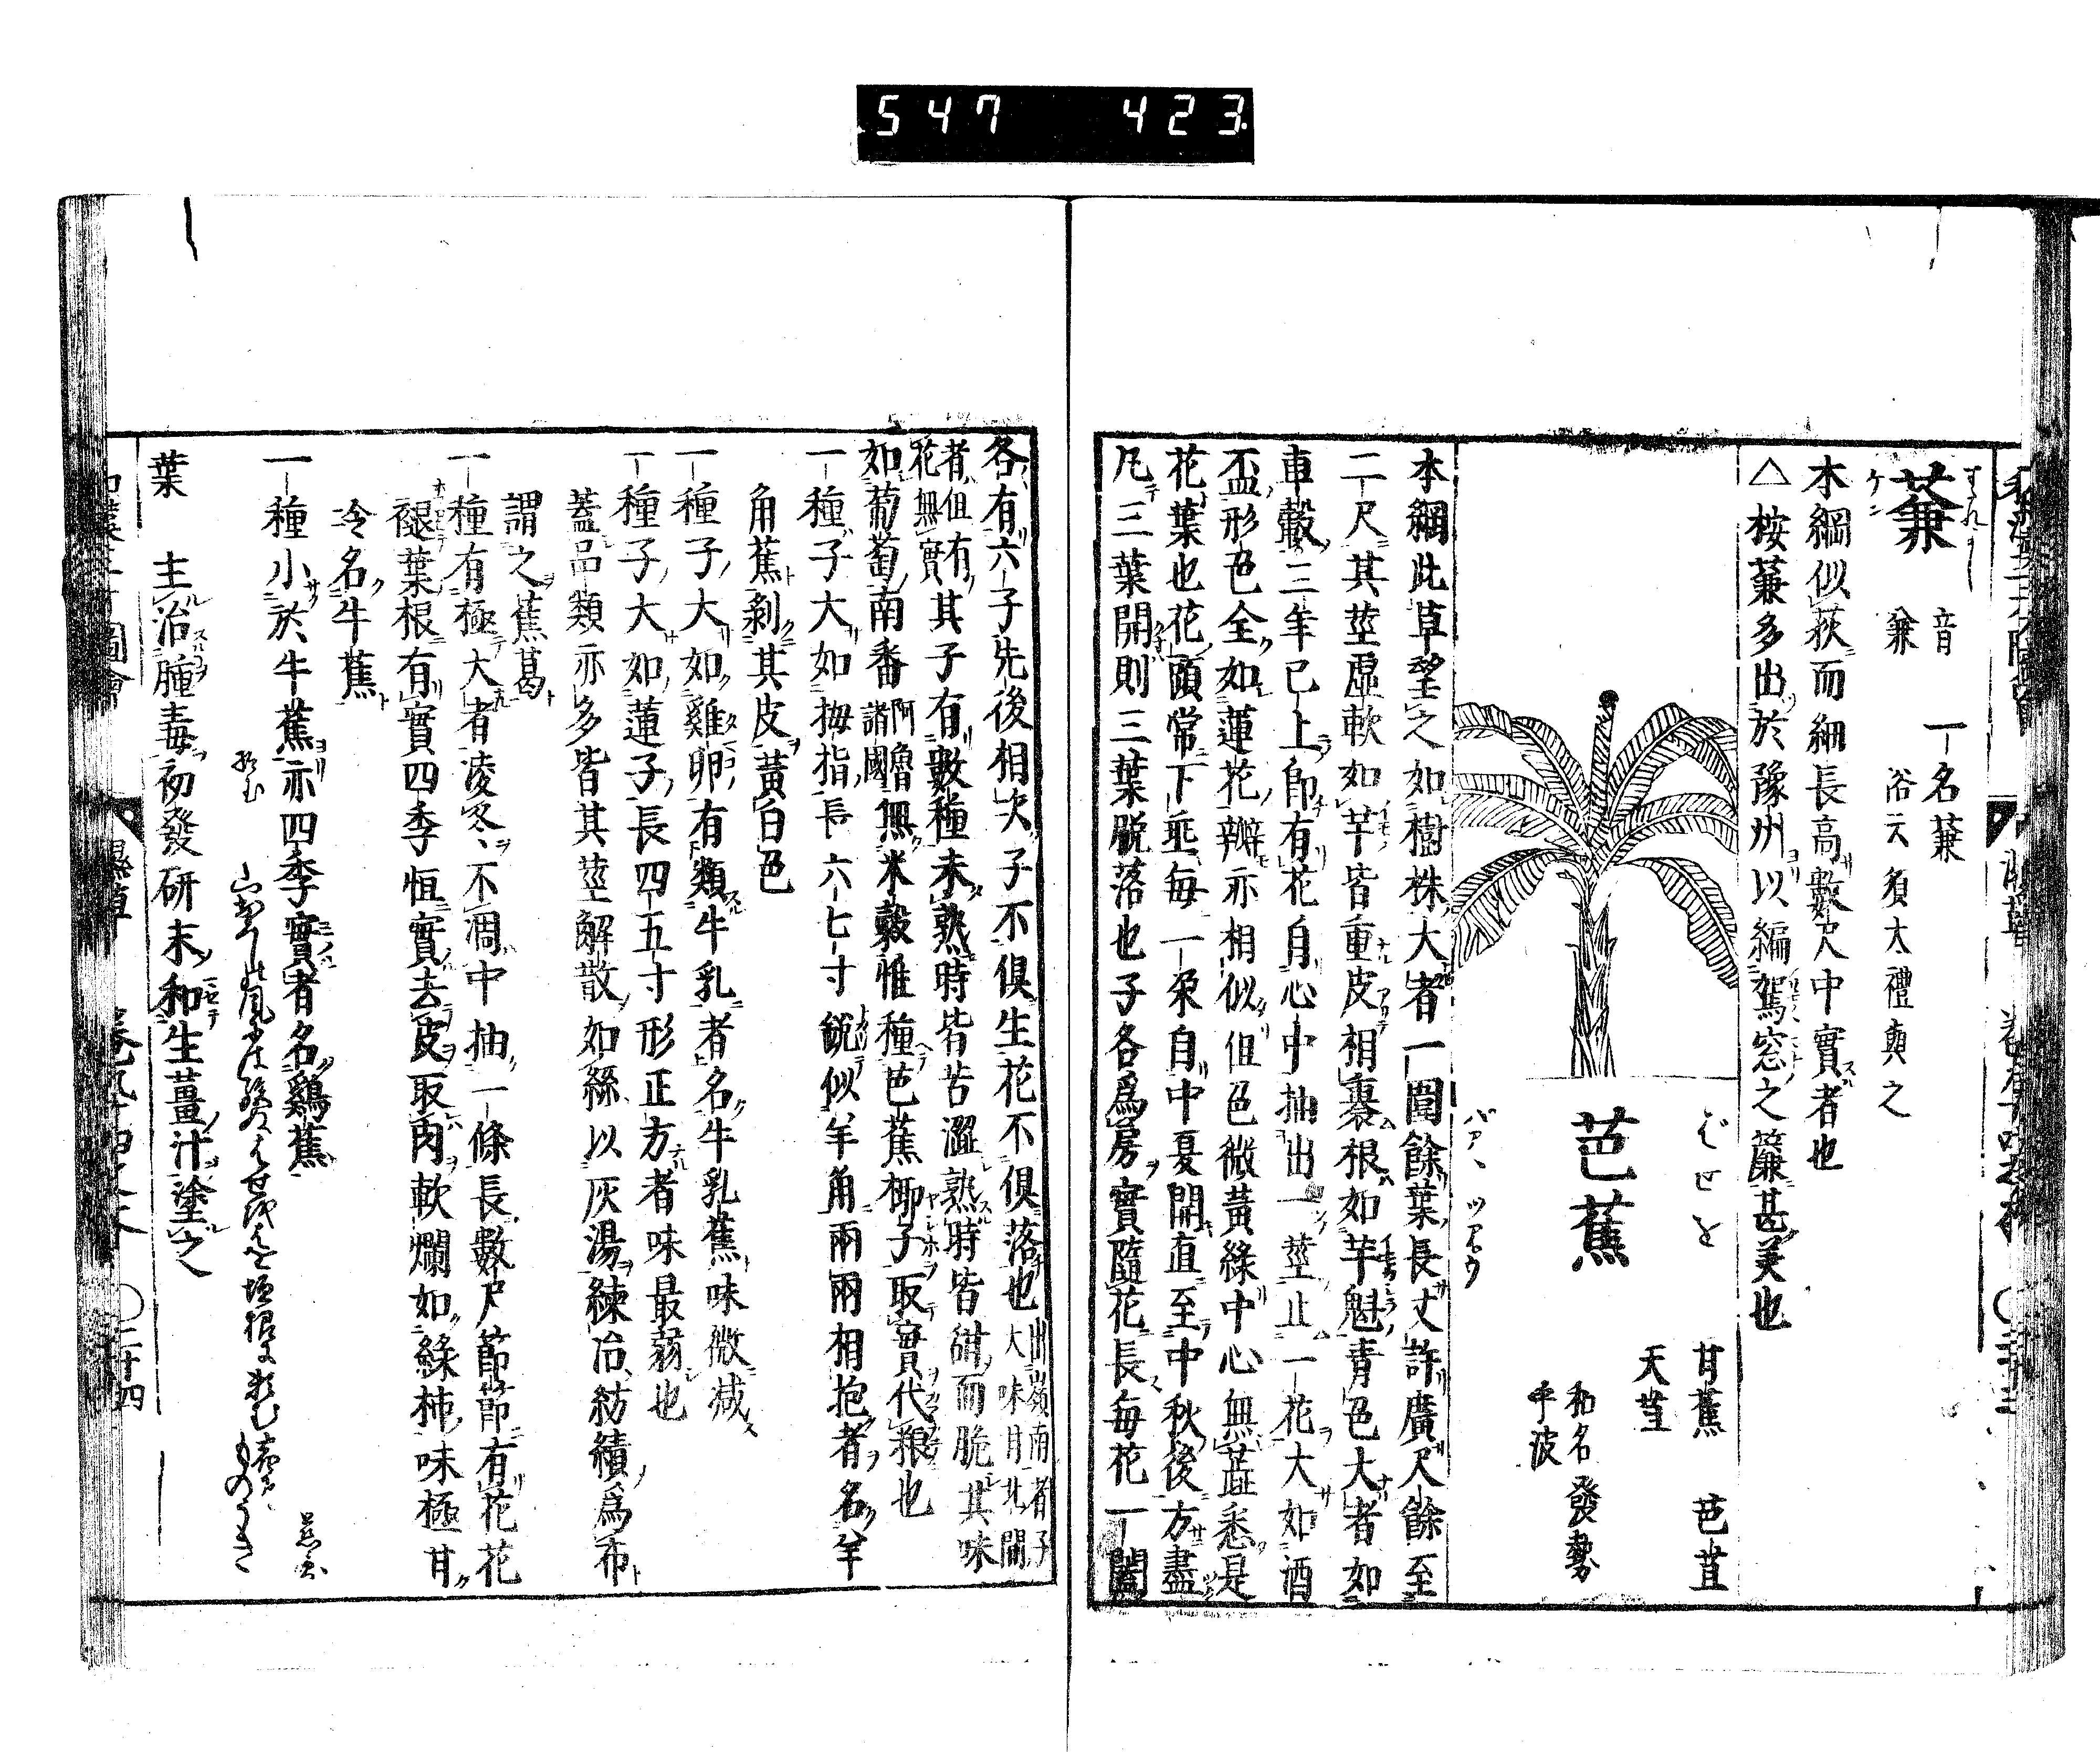 547 423
蒹
すだれよし
ケン
音
兼
一名薕
俗云須太禮與之
本綱似荻而細長高數尺中實者也
△按蒹多出於豫州以編駕窓之簾甚美也
芭蕉
ばせを
バアヽツアウ
甘蕉 芭苴
天苴
和名發勢
乎波
本綱此草望之如樹株大者一圍餘葉長丈許廣尺餘至
二尺其莖虛軟如芋皆重皮相裹根如芋魁青色大者如
車轂三年已上卽有花自心中抽出一莖止一花大如酒
盃形色全如蓮花瓣亦相似但色微黃綠中心無蕋悉是
花葉也花頭常下垂每一朶自中夏開直至中秋後方盡
凡三葉開則三葉脫落也子各爲房實隨花長每花一闔
各有六子先後相次子不俱生花不俱落也
出嶺南者子
大味甘北閒
者但有
花無實
其子有數種未熟時皆苦澀熟時皆甜而脆其味
如葡萄南番
阿魯
諸國
無米穀惟種芭蕉椰子取實代粮也
一種子大如拇指長六七寸銳似羊角兩兩相抱者名羊
角蕉剝其皮黃白色
一種子大如雞卵有類牛乳者名牛乳蕉味微減
一種子大如蓮子長四五寸形正方者味最弱也
蓋品類亦多皆其莖解散如絲以灰湯練治紡績爲布
謂之蕉葛
一種有極大者凌冬不凋中抽一條長數尺節節有花花
褪葉根有實四季恒實去皮取肉軟爛如綠柿味極甘
冷名牛蕉
一種小於牛蕉亦四季實者名鷄蕉
葉 主治腫毒初發研末和生薑汁塗之
二十四